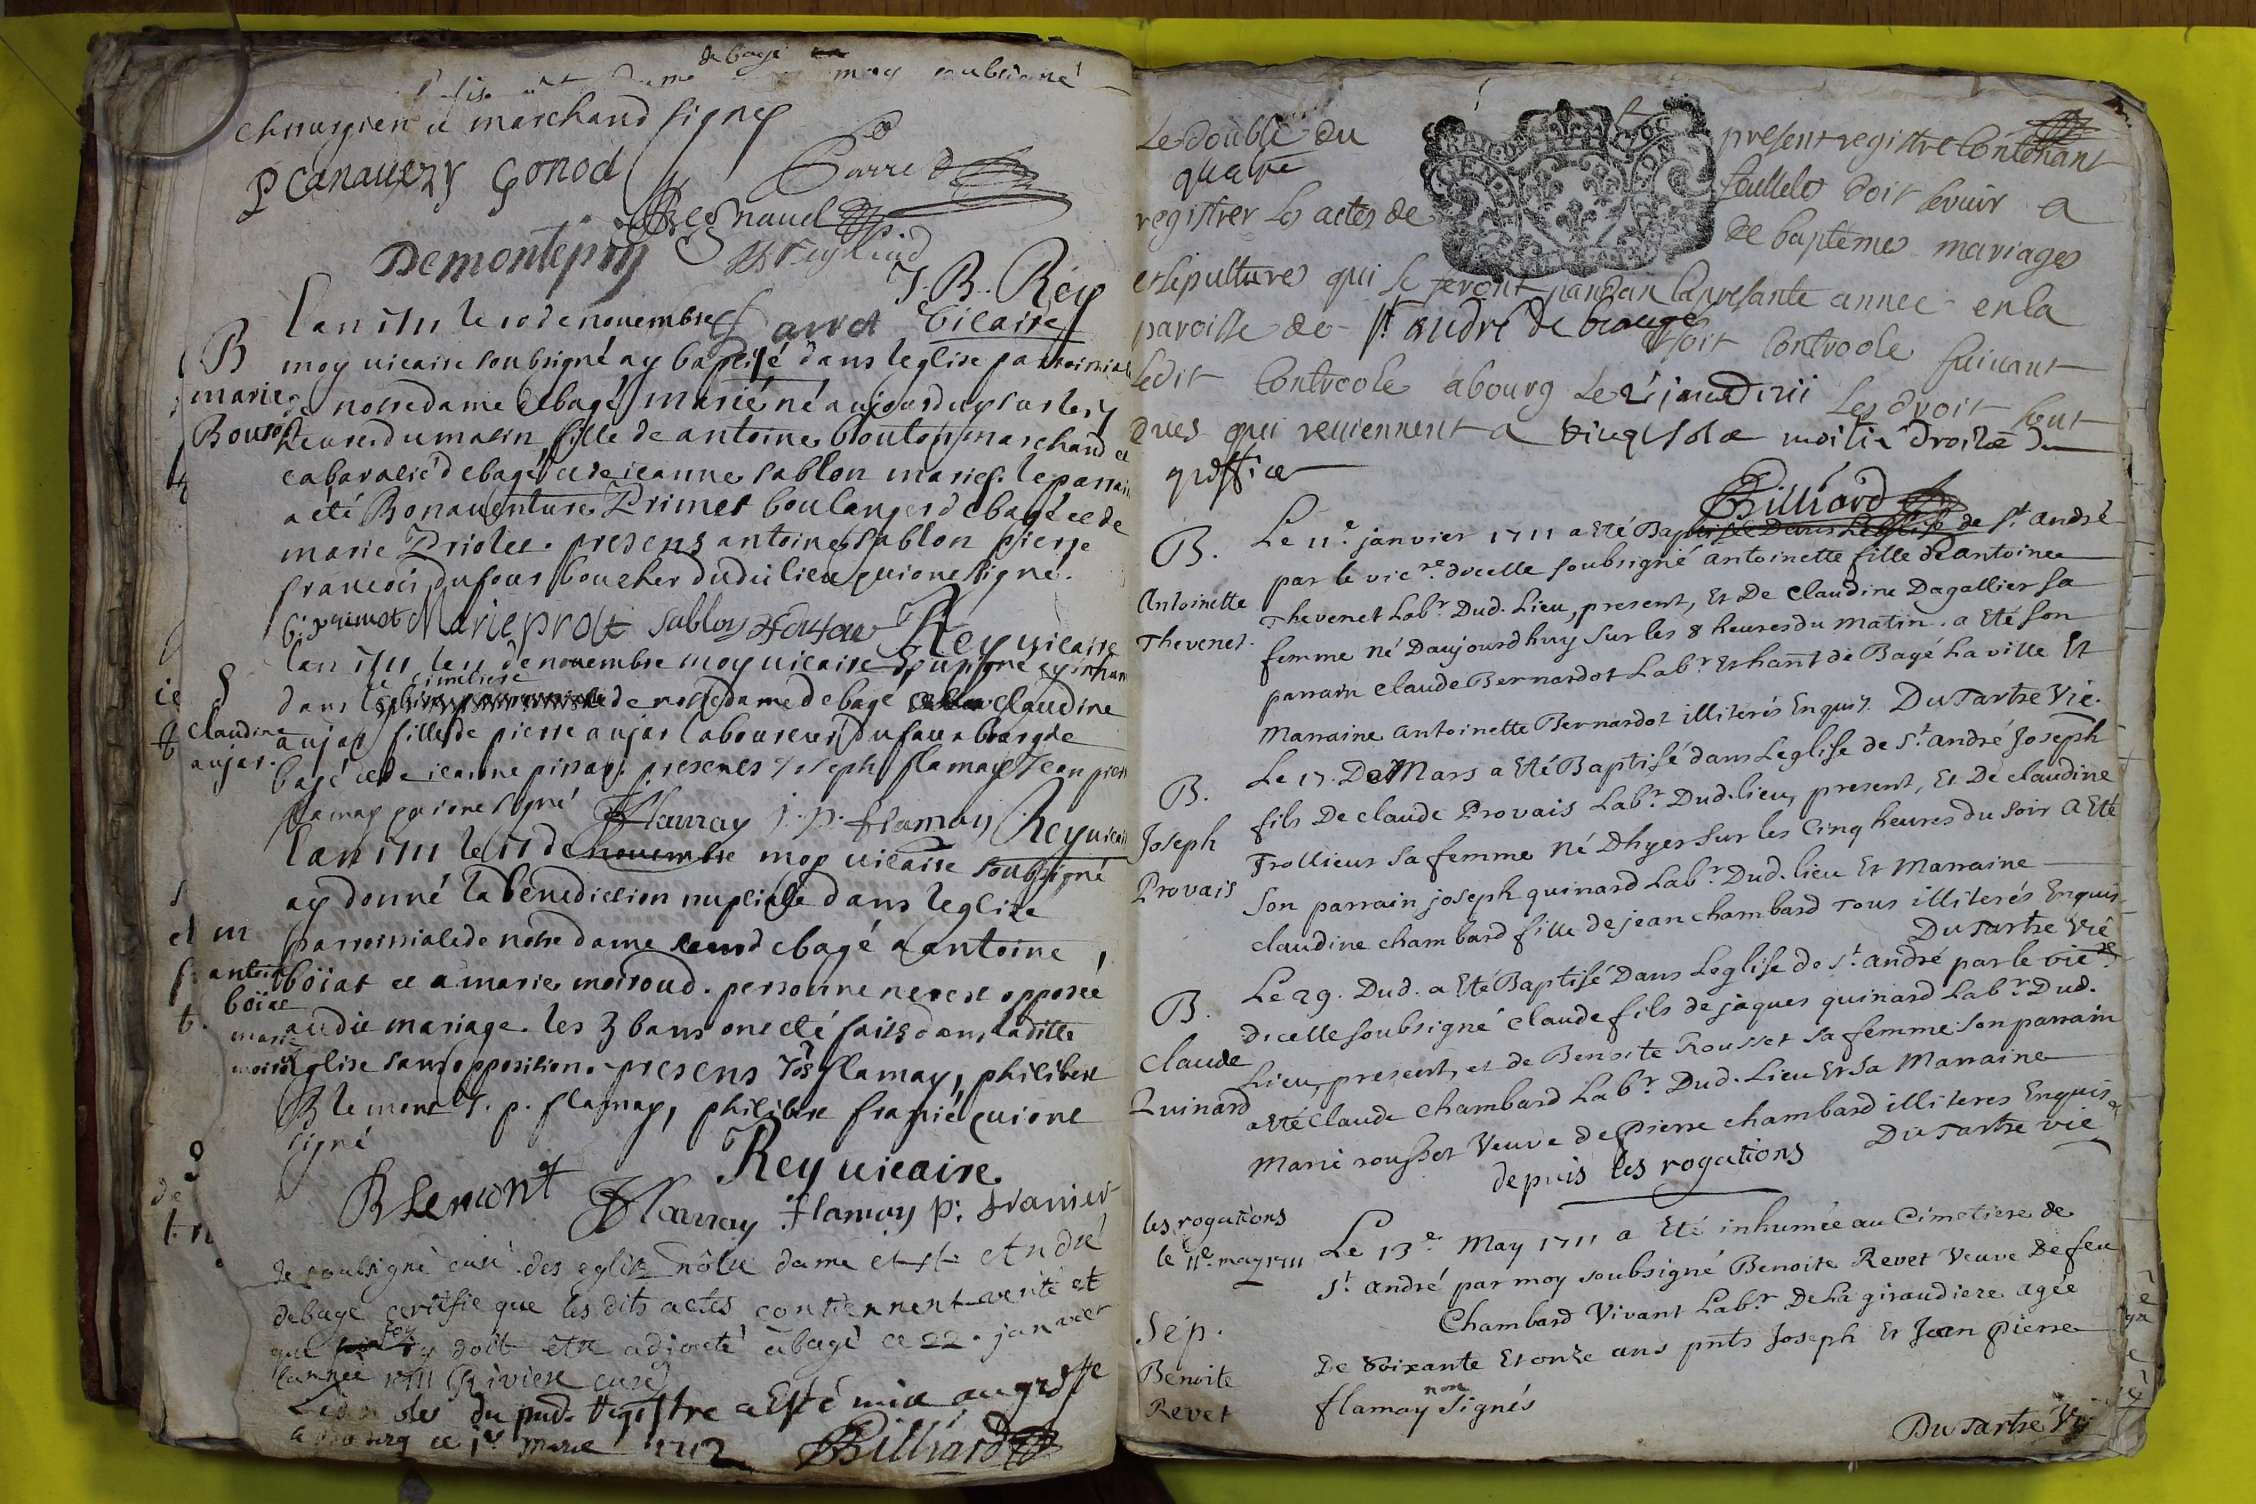 de bagé
moy soubsigné
chirurgien et marchand signes
P Canauezy Gonod
Demontepin
Regnaud
J. B. Rey
vicaire
lan 1711 le 10 de novembre
B
moy vicaire soubsigné ay baptisé dans leglise parroissiale
marie
de nostre dame de bagé marie né aujourduy sur les 7
Bouton
heures du matin fille de antoine bouton marchand et
cabaratié de bagé et de jeanne sablon mariés. le parrain
a été Bonauenture Primet boulanger de bagé et de
marie Priolet. presens antoine sablon pierre
francois dufour boucher dudit lieu qui ont signé.
b: primet Marie prolt sablon Rey vicaire
lan 1711 le 11 de novembre moy vicaire ay inhumé
le cimetiere
S
dans de nostre dame de bagé claudine
claudine
aujas fille de pierre aujas laboureur du faux bourg de
aujas.
bagé et de jeanne pissay. presents joseph flamay Jean pierre
flamay qui ont signé Flamay j. p. flamay Rey vicaire
lan 1711 le 17 de novembre moy vicaire soubsigné
ay donné la benediction nuptiale dans leglise
parroissiale de nôtre dame de bagé a antoine
antoine
boïat et a marie moiroud. personne ne sest opposée
boïat
audit mariage. les 3 bans ont été faits dans laditte
marie
eglise sans opposition. presens Jos flamay, philibert
Blemont J. p. flamay, philibert franié qui ont
signé
Rey vicaire
Blemont Flamay flamay p: franier
Je soubsigné curé des eglises nôtre dame et st André
debagé certifie que les dits actes contiennent verité et
que foy y doit etre adjouté à bagé ce 22. janvier
lannée 1711 Riviere curé
Le double du pnt. Registre a Esté mis au greffe
a Bourg ce 1er mars 1712 Billiard
Le double du present registre Contenant
quatre feuillets doit servir a
registrer les actes de de baptêmes mariages
et sépultures qui se feront pandan la presante annee en la
paroisse de St André de beaugé
soit Controole suivant
ledit Controole a bourg le 2e janvier 1711 Les droit sont
dues qui reuiennent a vingt sols moitié droits du
greffice
Billiard
B.
Le 11e. janvier 1711 a Eté Baptisée Dans Leglise de St. André
par le vicre. dicelle soubsigné antoinette fille de antoine
Antoinette
Thevenet Labr. Dud. Lieu, present, Et De Claudine Dagallier sa
Thevenet.
femme né Daujourdhuy sur les 8 heures du matin. a Eté son
parrain Claude Bernardot Labr. Et hant de Bagé la ville Et
Marraine antoinette Bernardot illiterés Enquis. Du Tartre Vic.
B.
Le 17. De Mars a Eté Baptisé dans Leglise de St. andré Joseph
fils De claude Provais Labr. Dud. lieu, present, Et De claudine
Joseph
Trollieur sa femme Né Dhyer sur les Cinq heures du soir a Eté
Provais
Son parrain joseph quinard Labr. Dud. lieu Et Marraine
claudine chambard fille de jean chambard Tous illiterés Enquis
Du Tartre Vic
B.
Le 29. Dud. a Eté Baptisé Dans Leglise de St. andré par le vicre
dicelle soubsigné claude fils de jaques quinard Labr. Dud.
Claude
Lieu, present, et de Benoite Rousset sa femme son parrain
Quinard
a Eté Claude Chambard Labr. Dud. Lieu Et Sa Marraine
Marie rousset Veuve de Pierre chambard illiteres Enquis
Du Tartre vic
depuis les rogations
les rogations
le 11e. may 1711
Le 13e. May 1711 a Eté inhumée au Cimetiere de
St. andré par moy soubsigné Benoite Revet Veuve De feu
Chambard Vivant Labr. De La giraudiere agée
Sép.
De Soixante Et onze ans pnts Joseph Et Jean pierre
Benoite
flamay non signés
Revet
Du Tartre Vic